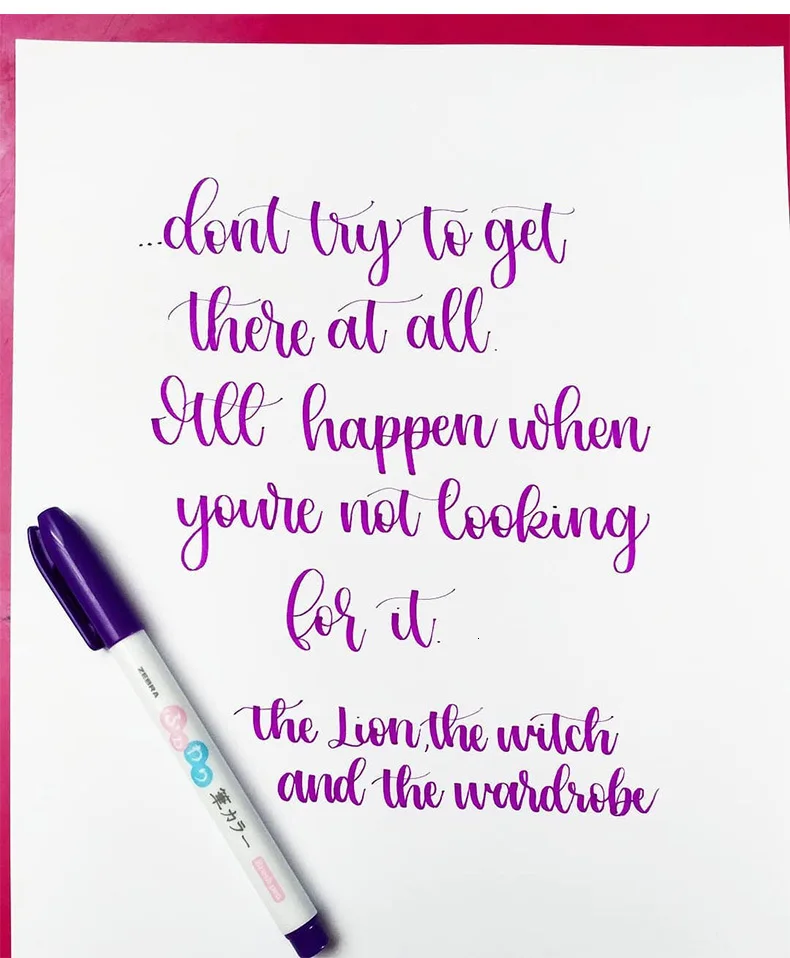 ...dont try to get
there at all.
Itll happen when
youre not looking
for it.
the Lion, the witch
and the wardrobe
ZEBRA
ふわり
筆カラー
Brush pen